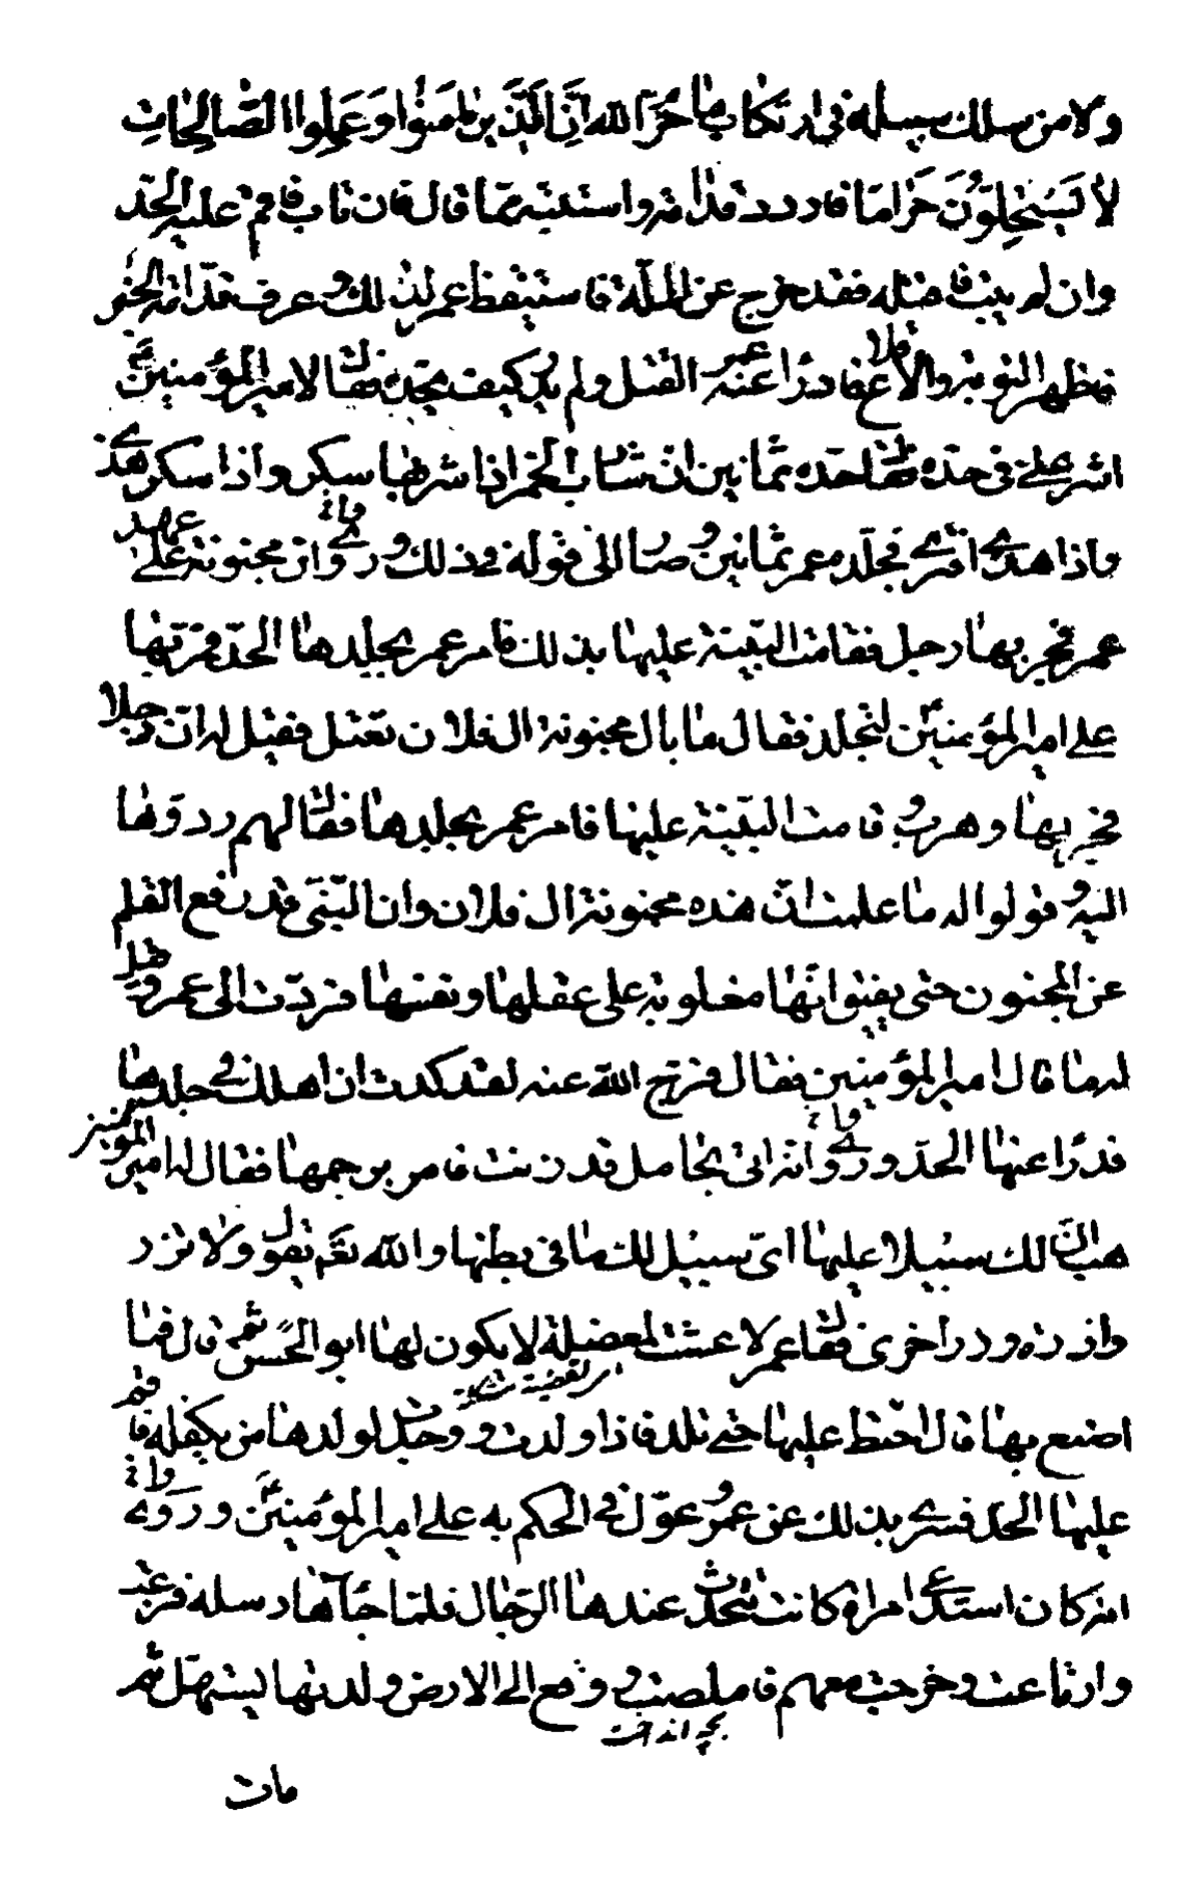 ولا من سلك سبيله في ارتكاب ما حرّم الله انّ الّذين امنوا وعملوا الصّالحات
لا يستحلّون حراما فاردد قدامة واستتبه ممّا قال فان تاب فاقم عليه الحدّ
وان لم يتب فاقتله فقد خرج عن الملّة فاستيقظ عمر لذلك وعرف قدامة الخبر
فاظهر التوبة والاقلاع فادرأ عمر عنه القتل ولم يدر كيف يحدّه فقال لامير المؤمنين ع
اشر عليّ في حدّه فقال حدّه ثمانين انّ شارب الخمر اذا شربها سكر واذا سكر هذى
واذا هذى افترى فجلّده عمر ثمانين وصار الى قوله في ذلك وروي وانّ مجنونة على عهد
عمر فجر بها رجل فقامت البيّنة عليها بذلك فامر عمر بجلدها الحدّ فمرّ بها
على امير المؤمنين ع لتجلد فقال ما بال مجنونة ال فلان تعتل فقيل له انّ رجلا
فجر بها وهرب وقامت البيّنة عليها فامر عمر بجلدها فقال لهم ردّوها
اليه وقولوا له ما علمت انّ هذه مجنونة ال فلان وان النّبيّ قد رفع القلم
عن المجنون حتى يفيق انّها مغلوبة على عقلها ونفسها فردّت الى عمر وقيل
له ما قال امير المؤمنين فقال فرّج الله عنه لقد كدت ان اهلك في جلدها
فدرأ عنها الحدّ وروي وانه اتي بحامل قد زنت فامر برجمها فقال له امير المؤمنين
هب انّ لك سبيلا عليها ايّ سبيل لك ما في بطنها والله تعم يقول ولا تزر
وازرة وزر اخرى فقال عمر لا عشت لمعضلة لا يكون لها ابو الحسن ثم قال فما
اصنع بها قال احتط عليها حتى تلد فاذا ولدت و وجدت لولدها من يكفله فاقم
عليها الحدّ فسري بذلك عن عمر وعوّل في الحكم به على امير المؤمنين ع وروي
انه كان استدعى امراة كانت تتحدّث عندها الرّجال فلمّا جاءها رسله فزعت
وارتاعت وخرجت معهم فاملصت و وقع الى الارض ولدها يستهلّ ثم
بچه انداخت
مات